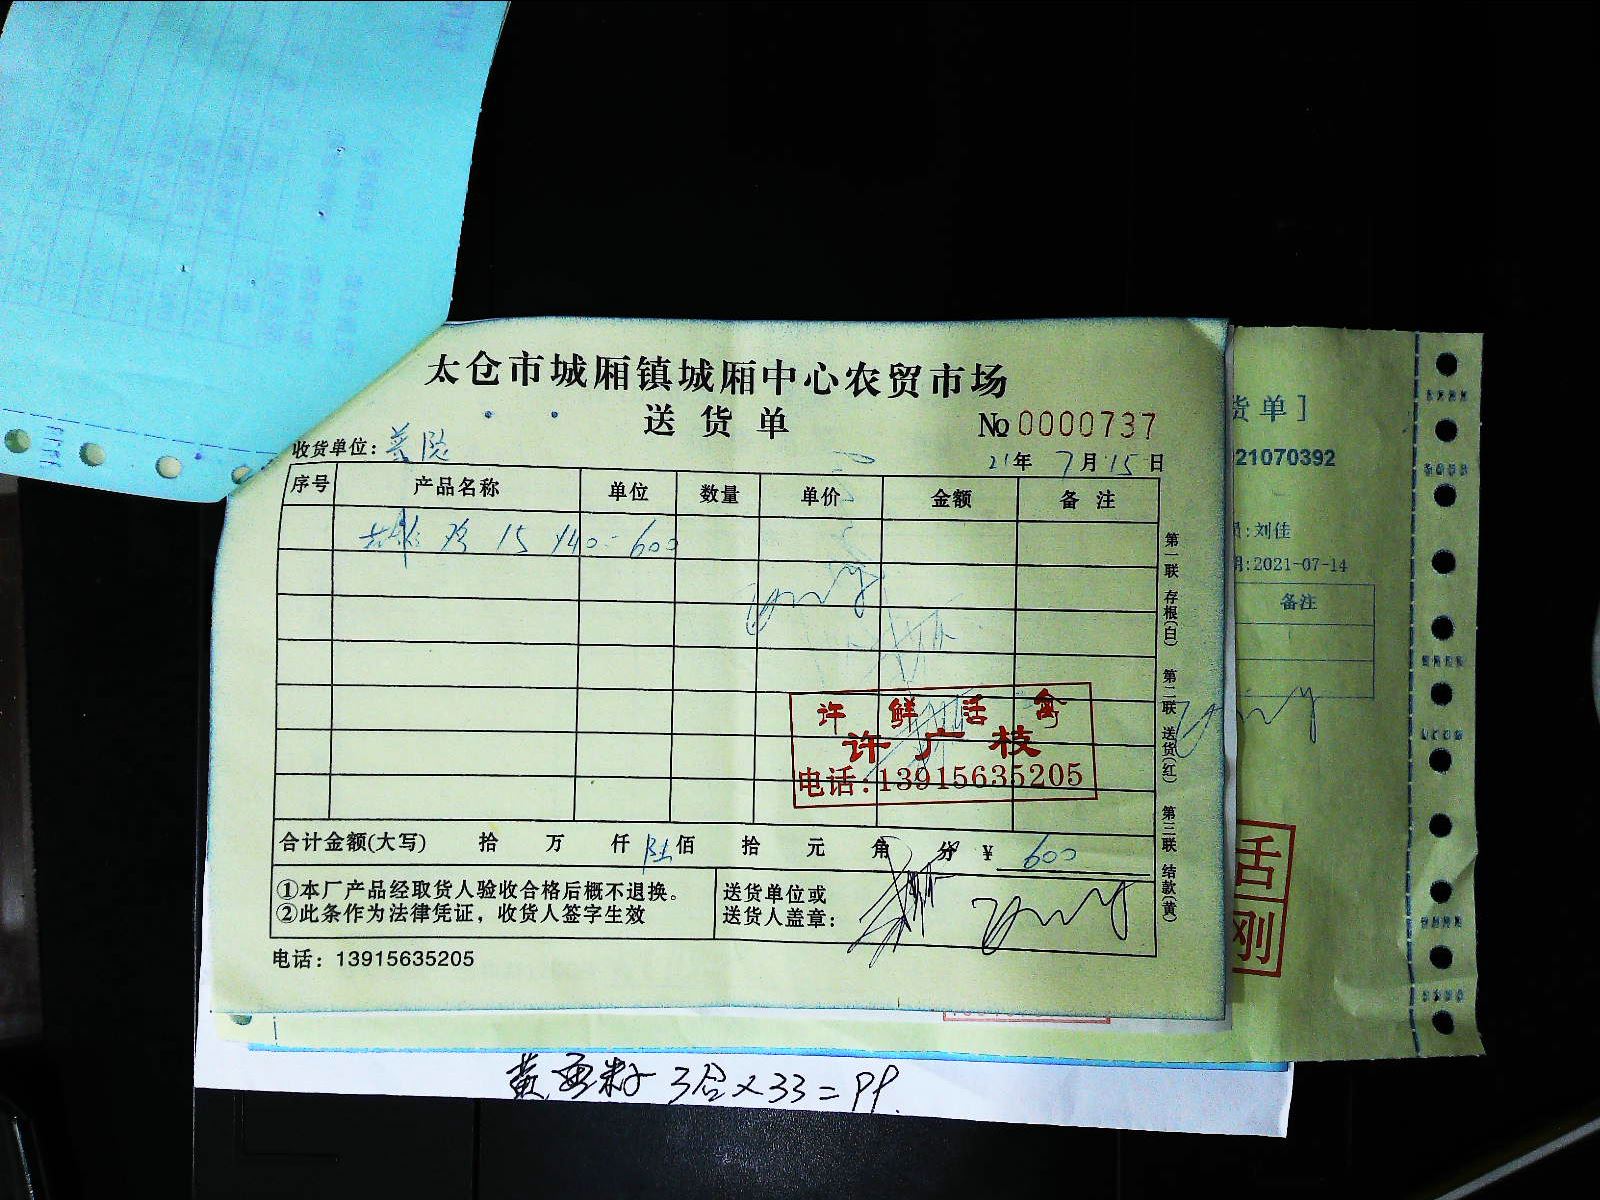 太仓市城厢镇城厢中心农贸市场
送货单
№0000737
收货单位:
21年 7月15日
序号 产品名称 单位 数量 单价 金额 备注
鸡 15 ¥40= 600
第一联 存根(白) 第二联 送货(红) 第三联 结款(黄)
许鲜活禽
许广枝
电话:13915635205
合计金额(大写) 拾 万 仟 陆佰 拾 元 角 分 ¥ 600
①本厂产品经取货人验收合格后概不退换。
②此条作为法律凭证，收货人签字生效
送货单位或
送货人盖章:
电话: 13915635205
货单]
21070392
员:刘佳
期:2021-07-14
备注
活
刚
黄西米 3合×33=99.